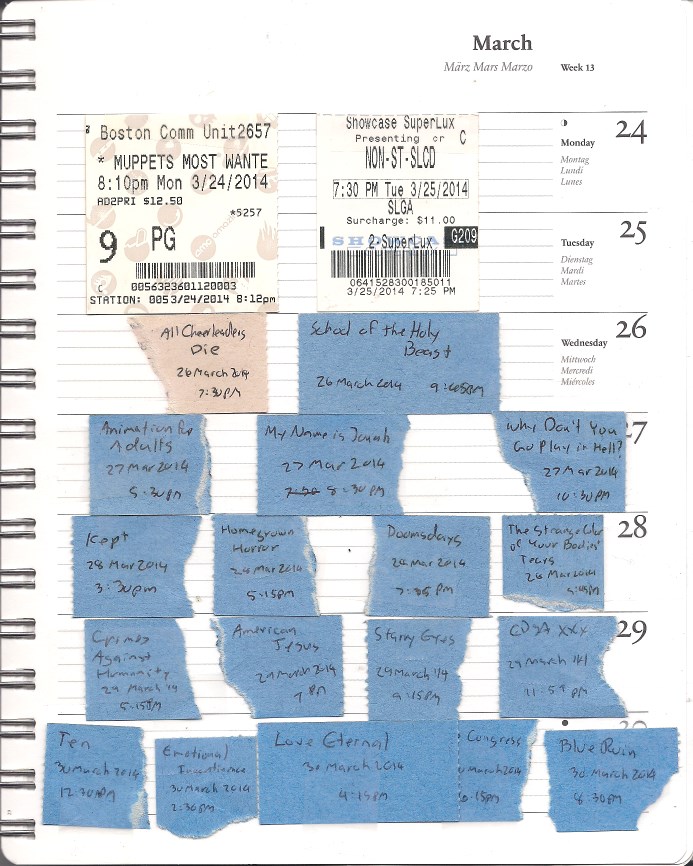 March
März Mars Marzo
Week 13
24
Monday
Montag
Lundi
Lunes
Boston Comm Unit2657
* MUPPETS MOST WANTE
8:10pm Mon 3/24/2014
AD2PRI $12.50
*5257
9 PG
C 0056323601120003
STATION: 0053/24/2014 8:12pm
Showcase SuperLux
Presenting cr
C
NON-ST-SLCD
7:30 PM Tue 3/25/2014
SLGA
Surcharge: $11.00
2-SuperLux G209
0641528300185011
3/25/2014 7:25 PM
25
Tuesday
Dienstag
Mardi
Martes
26
Wednesday
Mittwoch
Mercredi
Miércoles
All Cheerleaders
Die
26 March 2014
7:30PM
School of the Holy
Beast
26 March 2014
27
Animation for
Adults
27 Mar 2014
5:30PM
My Name is Jonah
27 Mar 2014
8:30PM
Why Don't You
Go Play in Hell?
27 Mar 2014
10:30PM
28
Kept
28 Mar 2014
3:30pm
Homegrown
Horror
28 Mar 2014
5:15PM
Doomsdays
28 Mar 2014
The Strange Color
of Your Bodies'
Tears
28 Mar 2014
29
Crimes
Against
Humanity
29 March '14
5:15PM
American
Jesus
29 March 2014
7 PM
Starry Eyes
29 March '14
9:15PM
XXX
29 March '14
11:59 PM
Ten
30 March 2014
12:30PM
Emotional
30 March 2014
2:30PM
Love Eternal
30 March 2014
4:15PM
Congress
March 2014
6:15PM
Blue Ruin
30 March 2014
8:30PM